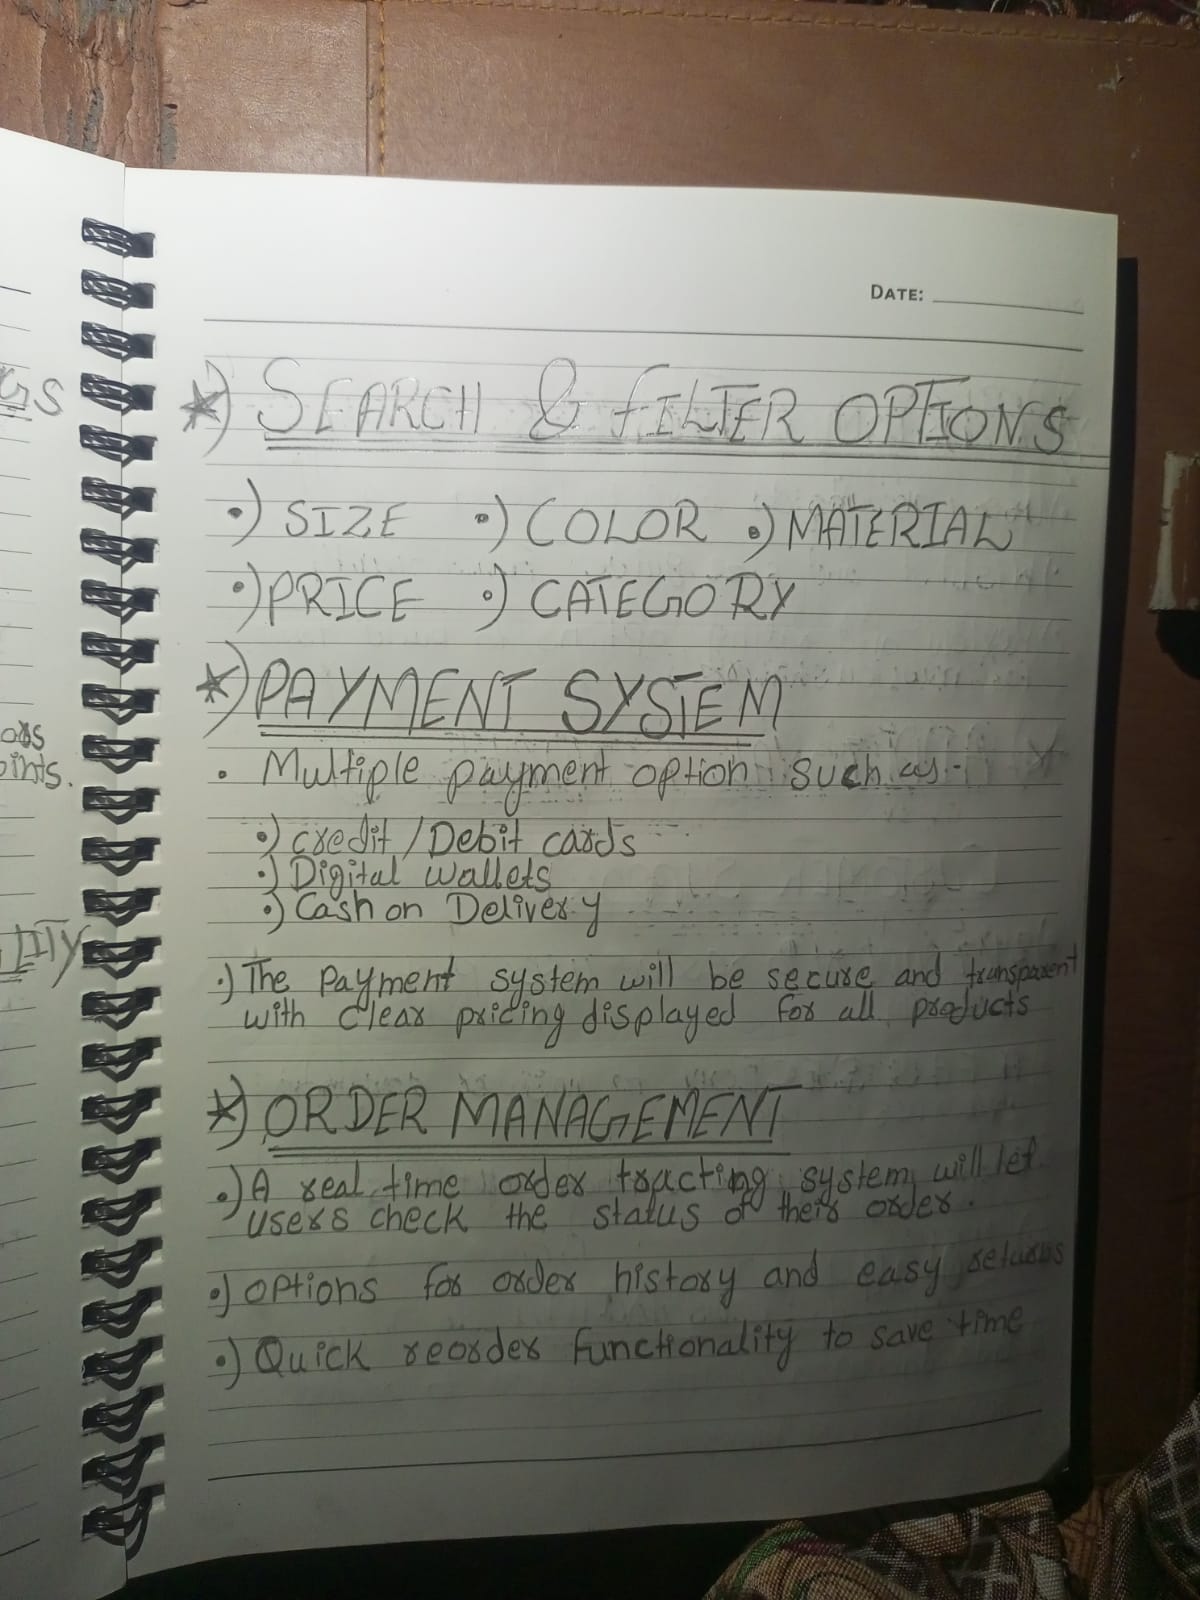 DATE:
*) SEARCH & FILTER OPTIONS
•) SIZE •) COLOR •) MATERIAL
•) PRICE •) CATEGORY
*) PAYMENT SYSTEM
• Multiple payment option such as -
•) credit / Debit cards
•) Digital wallets
•) Cash on Delivery
•) The payment system will be secure and transparent
with clear pricing displayed for all products
*) ORDER MANAGEMENT
•) A real time order tracting system will let
users check the status of their order.
•) options for order history and easy returns
•) Quick reorder functionality to save time